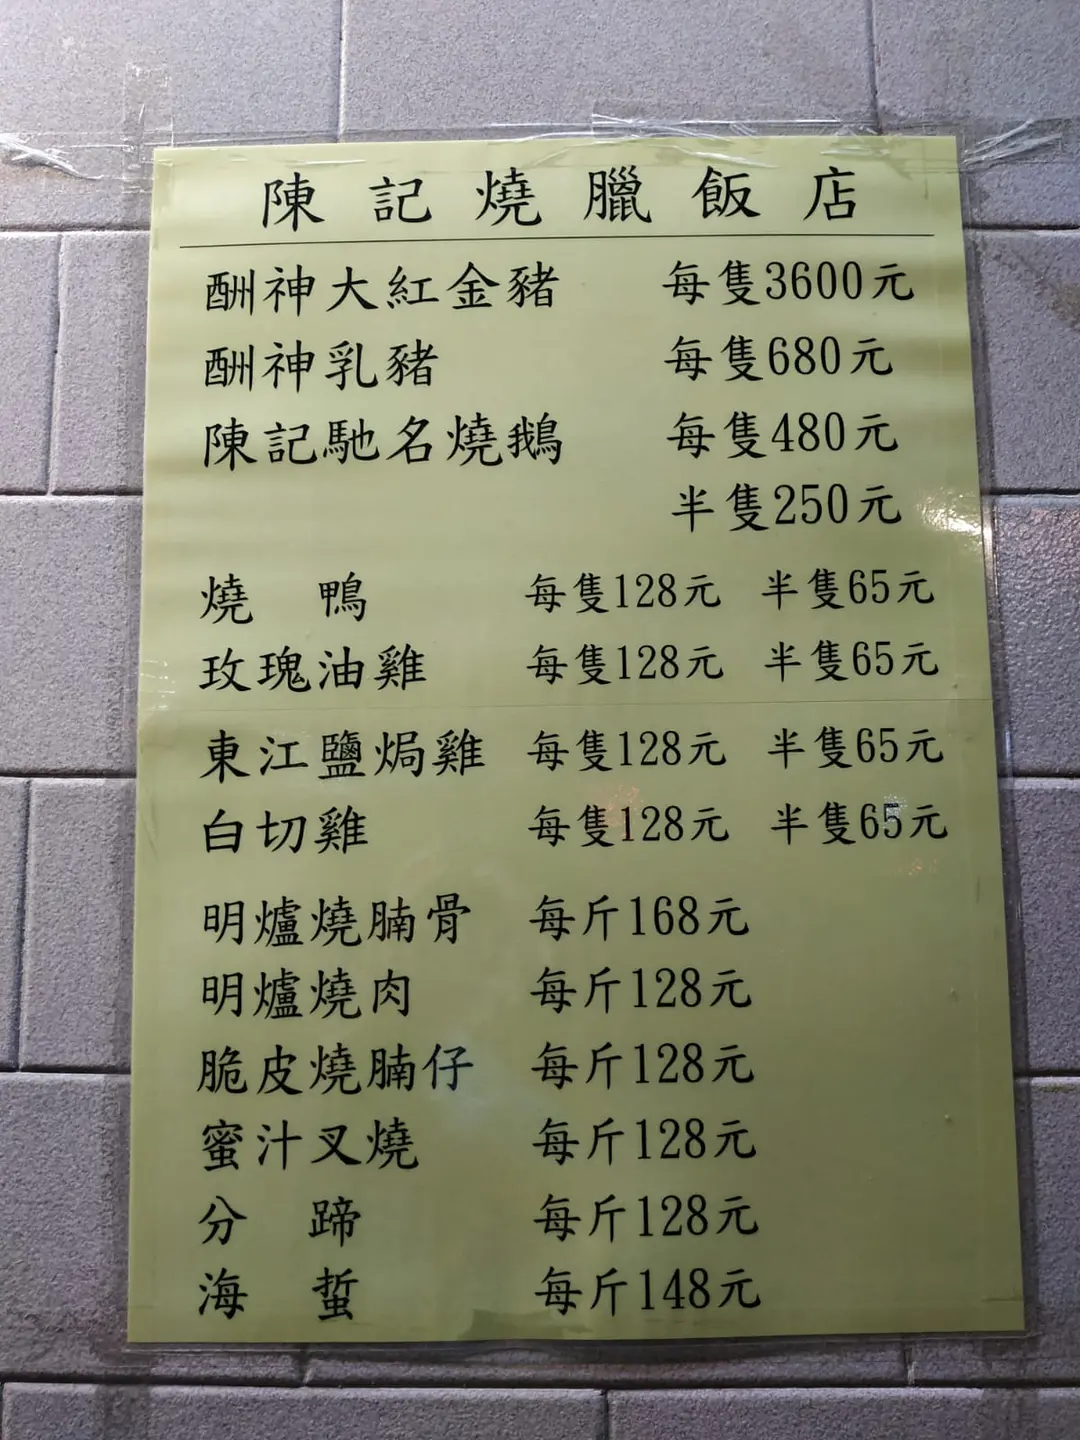 陳記燒臘飯店
酬神大紅金豬 每隻3600元
酬神乳豬 每隻680元
陳記馳名燒鵝 每隻480元
半隻250元
燒 鴨 每隻128元 半隻65元
玫瑰油雞 每隻128元 半隻65元
東江鹽焗雞 每隻128元 半隻65元
白切雞 每隻128元 半隻65元
明爐燒腩骨 每斤168元
明爐燒肉 每斤128元
脆皮燒腩仔 每斤128元
蜜汁叉燒 每斤128元
分 蹄 每斤128元
海 蜇 每斤148元